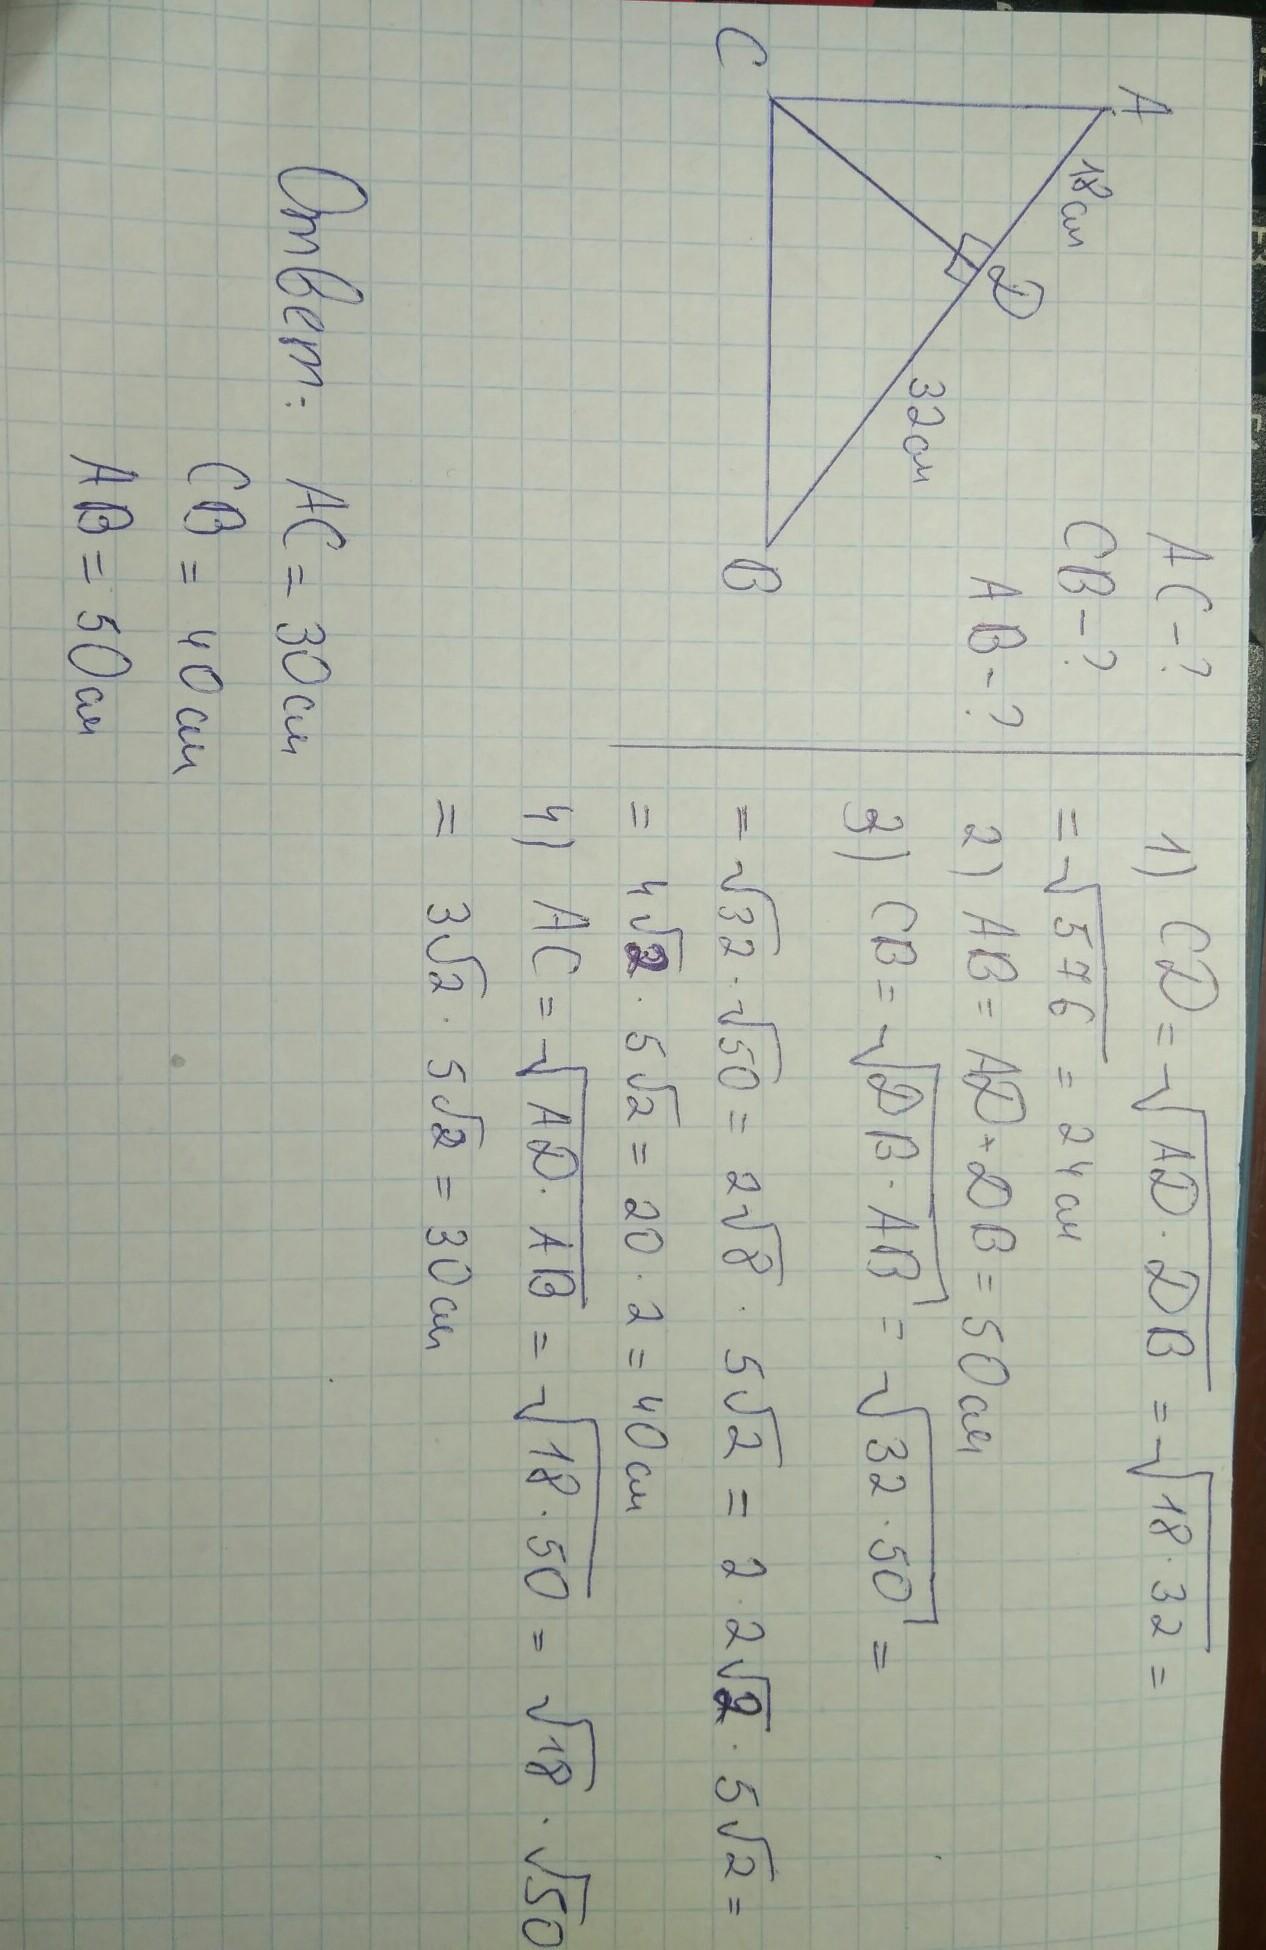 A
18см
D
32см
C
B
AC-?
CB-?
AB-?
1) CD=√AD·DB=√18·32=
=√576=24см
2) AB=AD+DB=50см
3) CB=√DB·AB=√32·50=
=√32·√50=2√8·5√2=2·2√2·5√2=
=4√2·5√2=20·2=40см
4) AC=√AD·AB=√18·50=√18·√50
=3√2·5√2=30см
Ответ: AC=30см
CB=40см
AB=50см